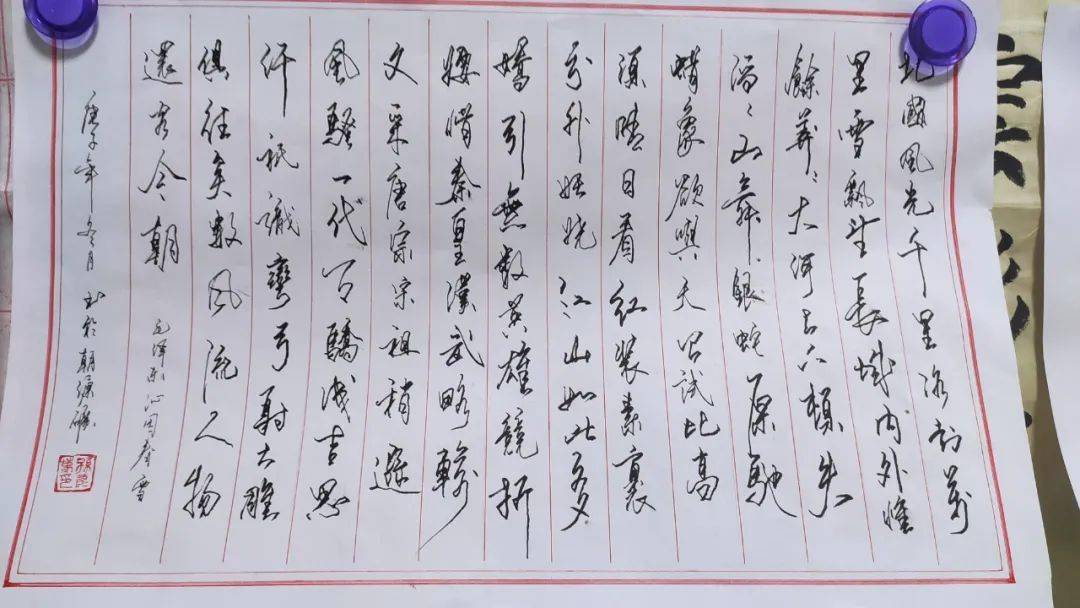 北國風光千里冰封萬
里雪飄望長城内外惟
餘莽〻大河上下頓失
滔〻山舞銀蛇原馳
蜡象欲與天公試比高
須晴日看紅装素裹
分外妖嬈江山如此多
嬌引無數英雄競折
腰惜秦皇漢武略輸
文采唐宗宋祖稍遜
風騷一代天驕成吉思
汗祇識彎弓射大雕
俱往矣數風流人物
還看今朝 毛澤東沁園春雪
庚子年冬月 書於朝